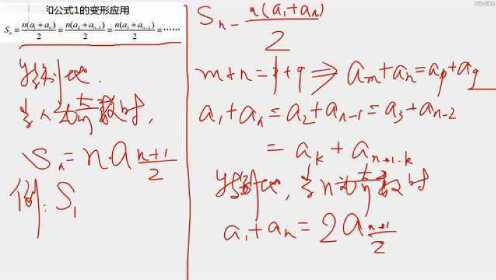 和公式1的变形应用
Sₙ = n(a₁+aₙ)/2 = n(a₂+aₙ₋₁)/2 = n(a₃+aₙ₋₂)/2 = ……
特别地.
当n为奇数时,
Sₙ = n a_{(n+1)/2}
例: S₁
Sₙ = n(a₁+aₙ)/2
m+n=p+q ⇒ aₘ+aₙ=aₚ+a_q
a₁+aₙ=a₂+aₙ₋₁=a₃+aₙ₋₂
=aₖ+aₙ₊₁₋ₖ
特别地,当n为奇数时
a₁+aₙ=2a_{(n+1)/2}